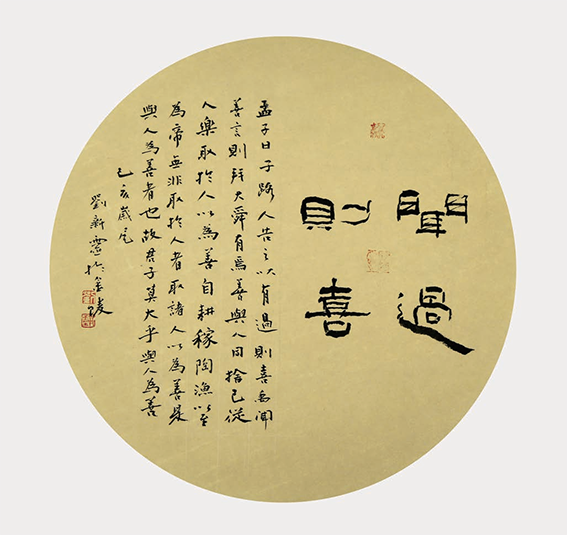 聞過
則喜
孟子曰子路人告之以有過則喜禹聞
善言則拜大舜有焉善與人同捨己從
人樂取於人以為善自耕稼陶漁以至
為帝無非取於人者取諸人以為善是
與人為善者也故君子莫大乎與人為善
己亥歲尾
劉新於金陵